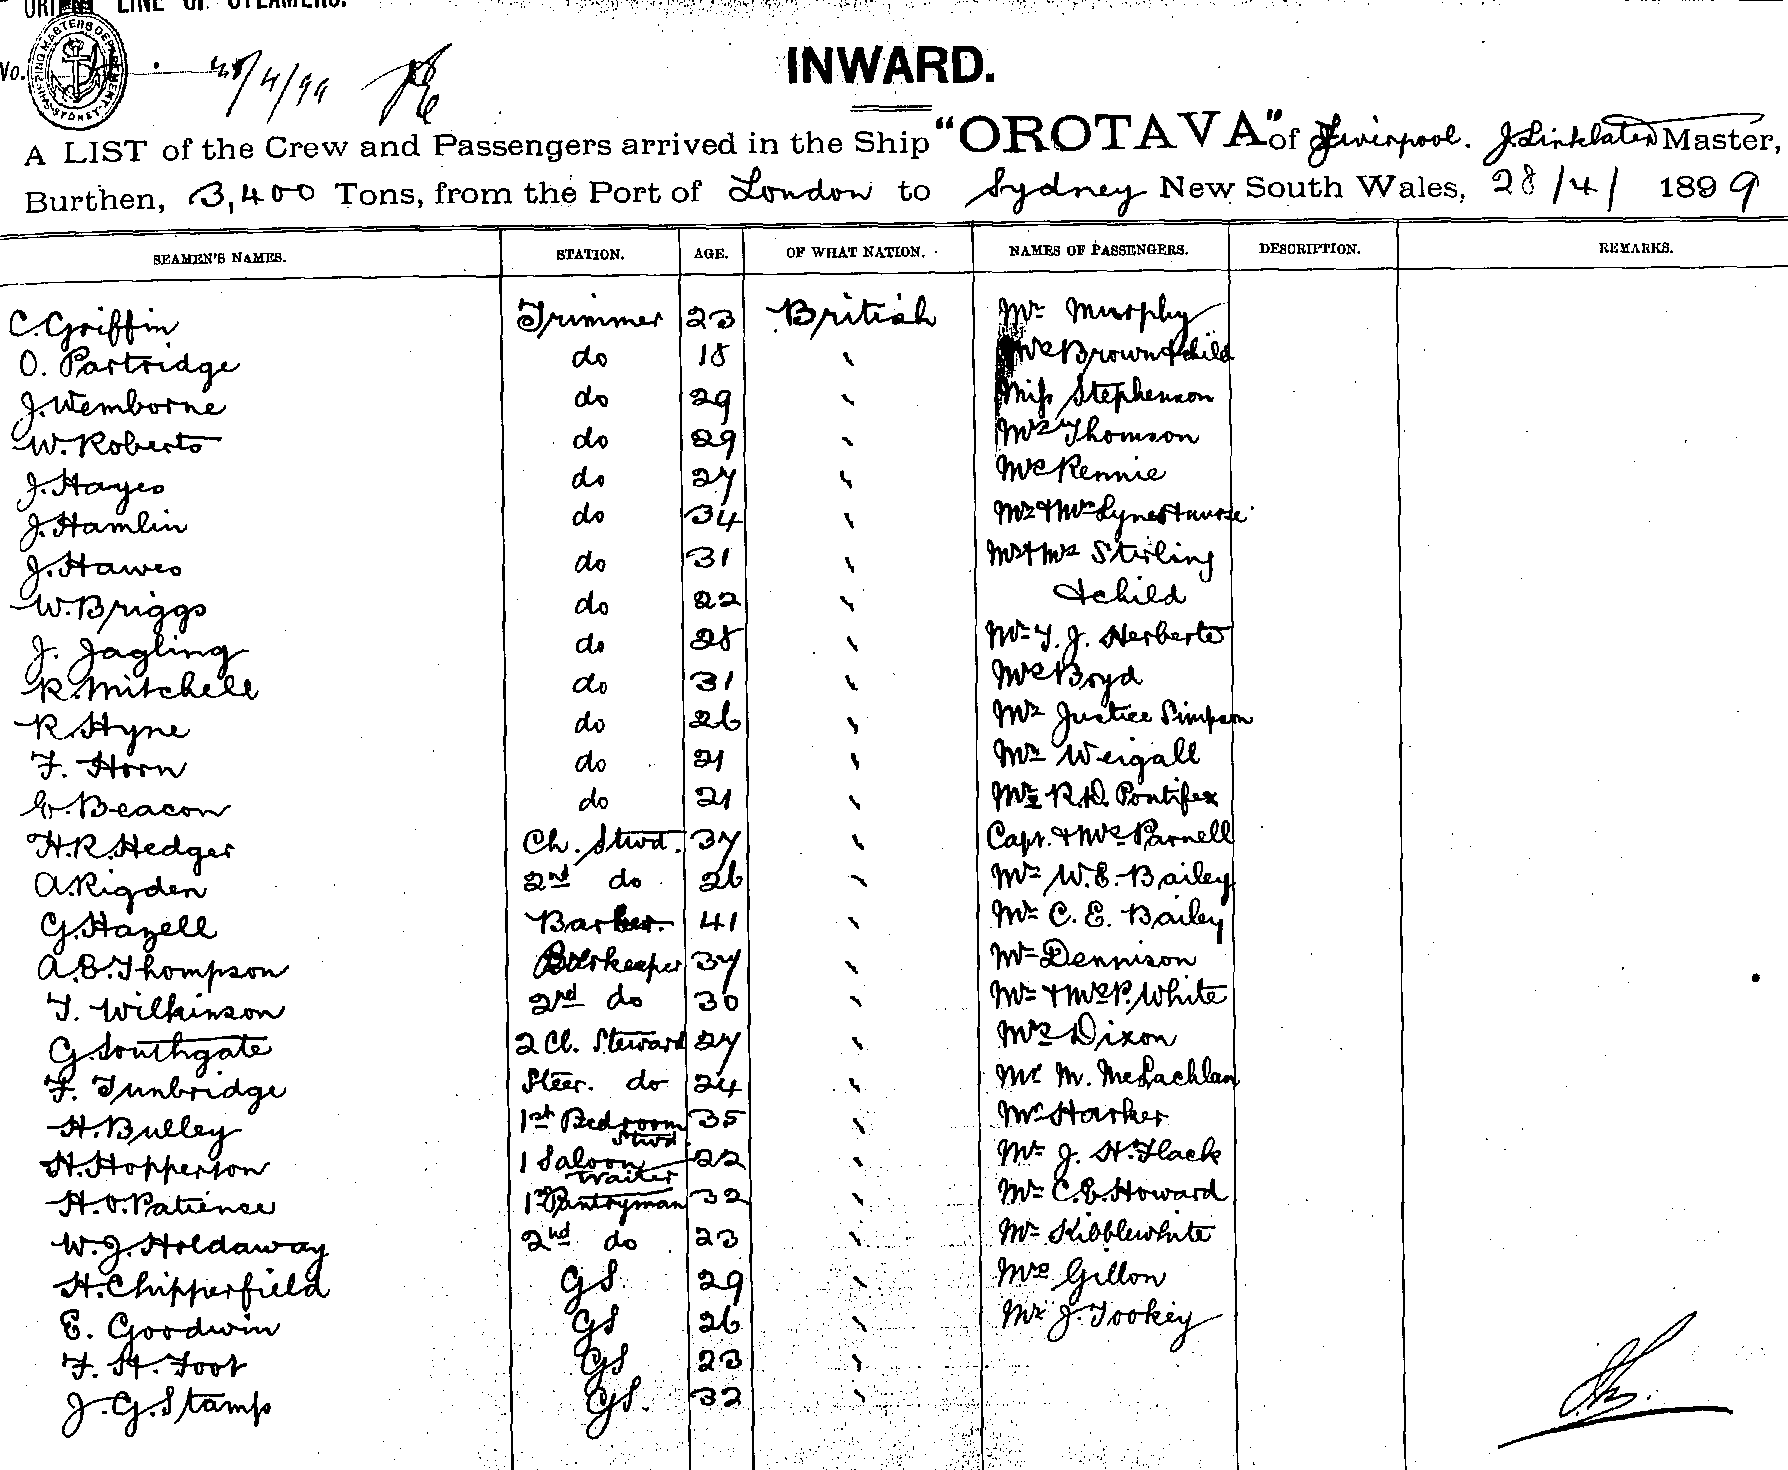 ORIENT LINE OF STEAMERS.
SHIPPING MASTERS DEPARTMENT SYDNEY
No.
/4/99
INWARD.
A LIST of the Crew and Passengers arrived in the Ship "OROTAVA" of Liverpool. J. Linklater Master,
Burthen, 3,400 Tons, from the Port of London to Sydney New South Wales, 28/4/ 1899
SEAMEN'S NAMES. STATION. AGE. OF WHAT NATION. NAMES OF PASSENGERS. DESCRIPTION. REMARKS.
C. Griffin Trimmer 23 British Mr Murphy
O. Partridge do 18 " Mrs Brown & child
J. Wemborne do 29 " Miss Stephenson
W. Roberts do 29 " Mrs Thomson
J. Hayes do 27 " Mrs Rennie
J. Hamlin do 34 " Mr & Mrs Lynes & nurse
J. Hawes do 31 " Mr & Mrs Stirling
W. Briggs do 22 " & child
J. Jagling do 28 " Mr T. J. Herberte
R. Mitchell do 31 " Mrs Boyd
R Hyne do 26 " Mr Justice Simpson
F. Horn do 21 " Mr Weigall
C. Beacon do 21 " Mr R.D. Pontifex
H.R. Hedger Ch. Stwd. 37 " Capt. & Mrs Parnell
A. Rigden 2nd do 26 " Mr W.E. Bailey
G. Hazell Barber. 41 " Mr C. E. Bailey
A.E. Thompson Barkeeper 37 " Mr Dennison
T. Wilkinson 2nd do 30 " Mr & Mrs P. White
G Southgate 2 Cl. Steward 27 " Mrs Dixon
F. Tunbridge Steer. do 24 " Mr M. McLachlan
H. Bulley 1st Bedroom Stwd. 35 " Mr Harker
H. Hopperton 1 Saloon Waiter 22 " Mr J. H. Flack
H.O. Patience 1st Pantryman 32 " Mr C.E. Howard
W. J. Holdaway 2nd do 23 " Mr Kibblewhite
H. Chipperfield GS. 29 " Mrs Gillon
E. Goodwin GS 26 " Mr J. Tookey
F. H. Foot GS 23 "
J. G. Stamp GS. 32 "